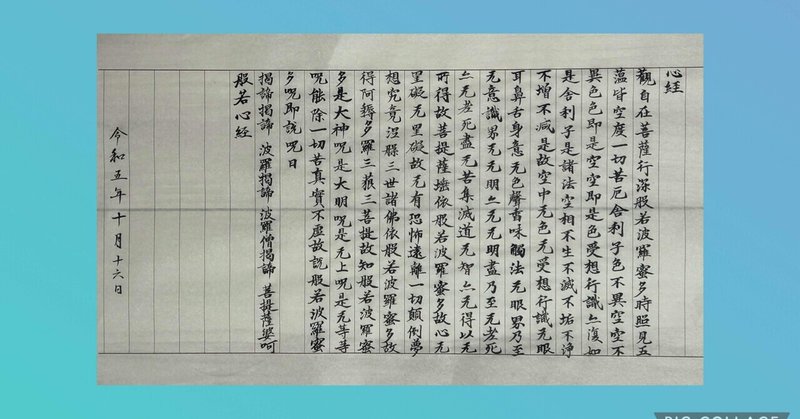 心経
觀自在菩薩行深般若波羅蜜多時照見五
蘊皆空度一切苦厄舎利子色不異空空不
異色色即是空空即是色受想行識亦復如
是舎利子是諸法空相不生不滅不垢不浄
不増不減是故空中无色无受想行識无眼
耳鼻舌身意无色聲香味觸法无眼界乃至
无意識界无无明亦无无明盡乃至无老死
亦无老死盡无苦集滅道无智亦无得以无
所得故菩提薩埵依般若波羅蜜多故心无
罣礙无罣礙故无有恐怖遠離一切顛倒夢
想究竟涅槃三世諸佛依般若波羅蜜多故
得阿耨多羅三藐三菩提故知般若波羅蜜
多是大神呪是大明呪是无上呪是无等等
呪能除一切苦真實不虚故説般若波羅蜜
多呪即説呪曰
揭諦揭諦 波羅揭諦 波羅僧揭諦 菩提薩婆呵
般若心経
令和五年十月十六日
PIC COLLAGE